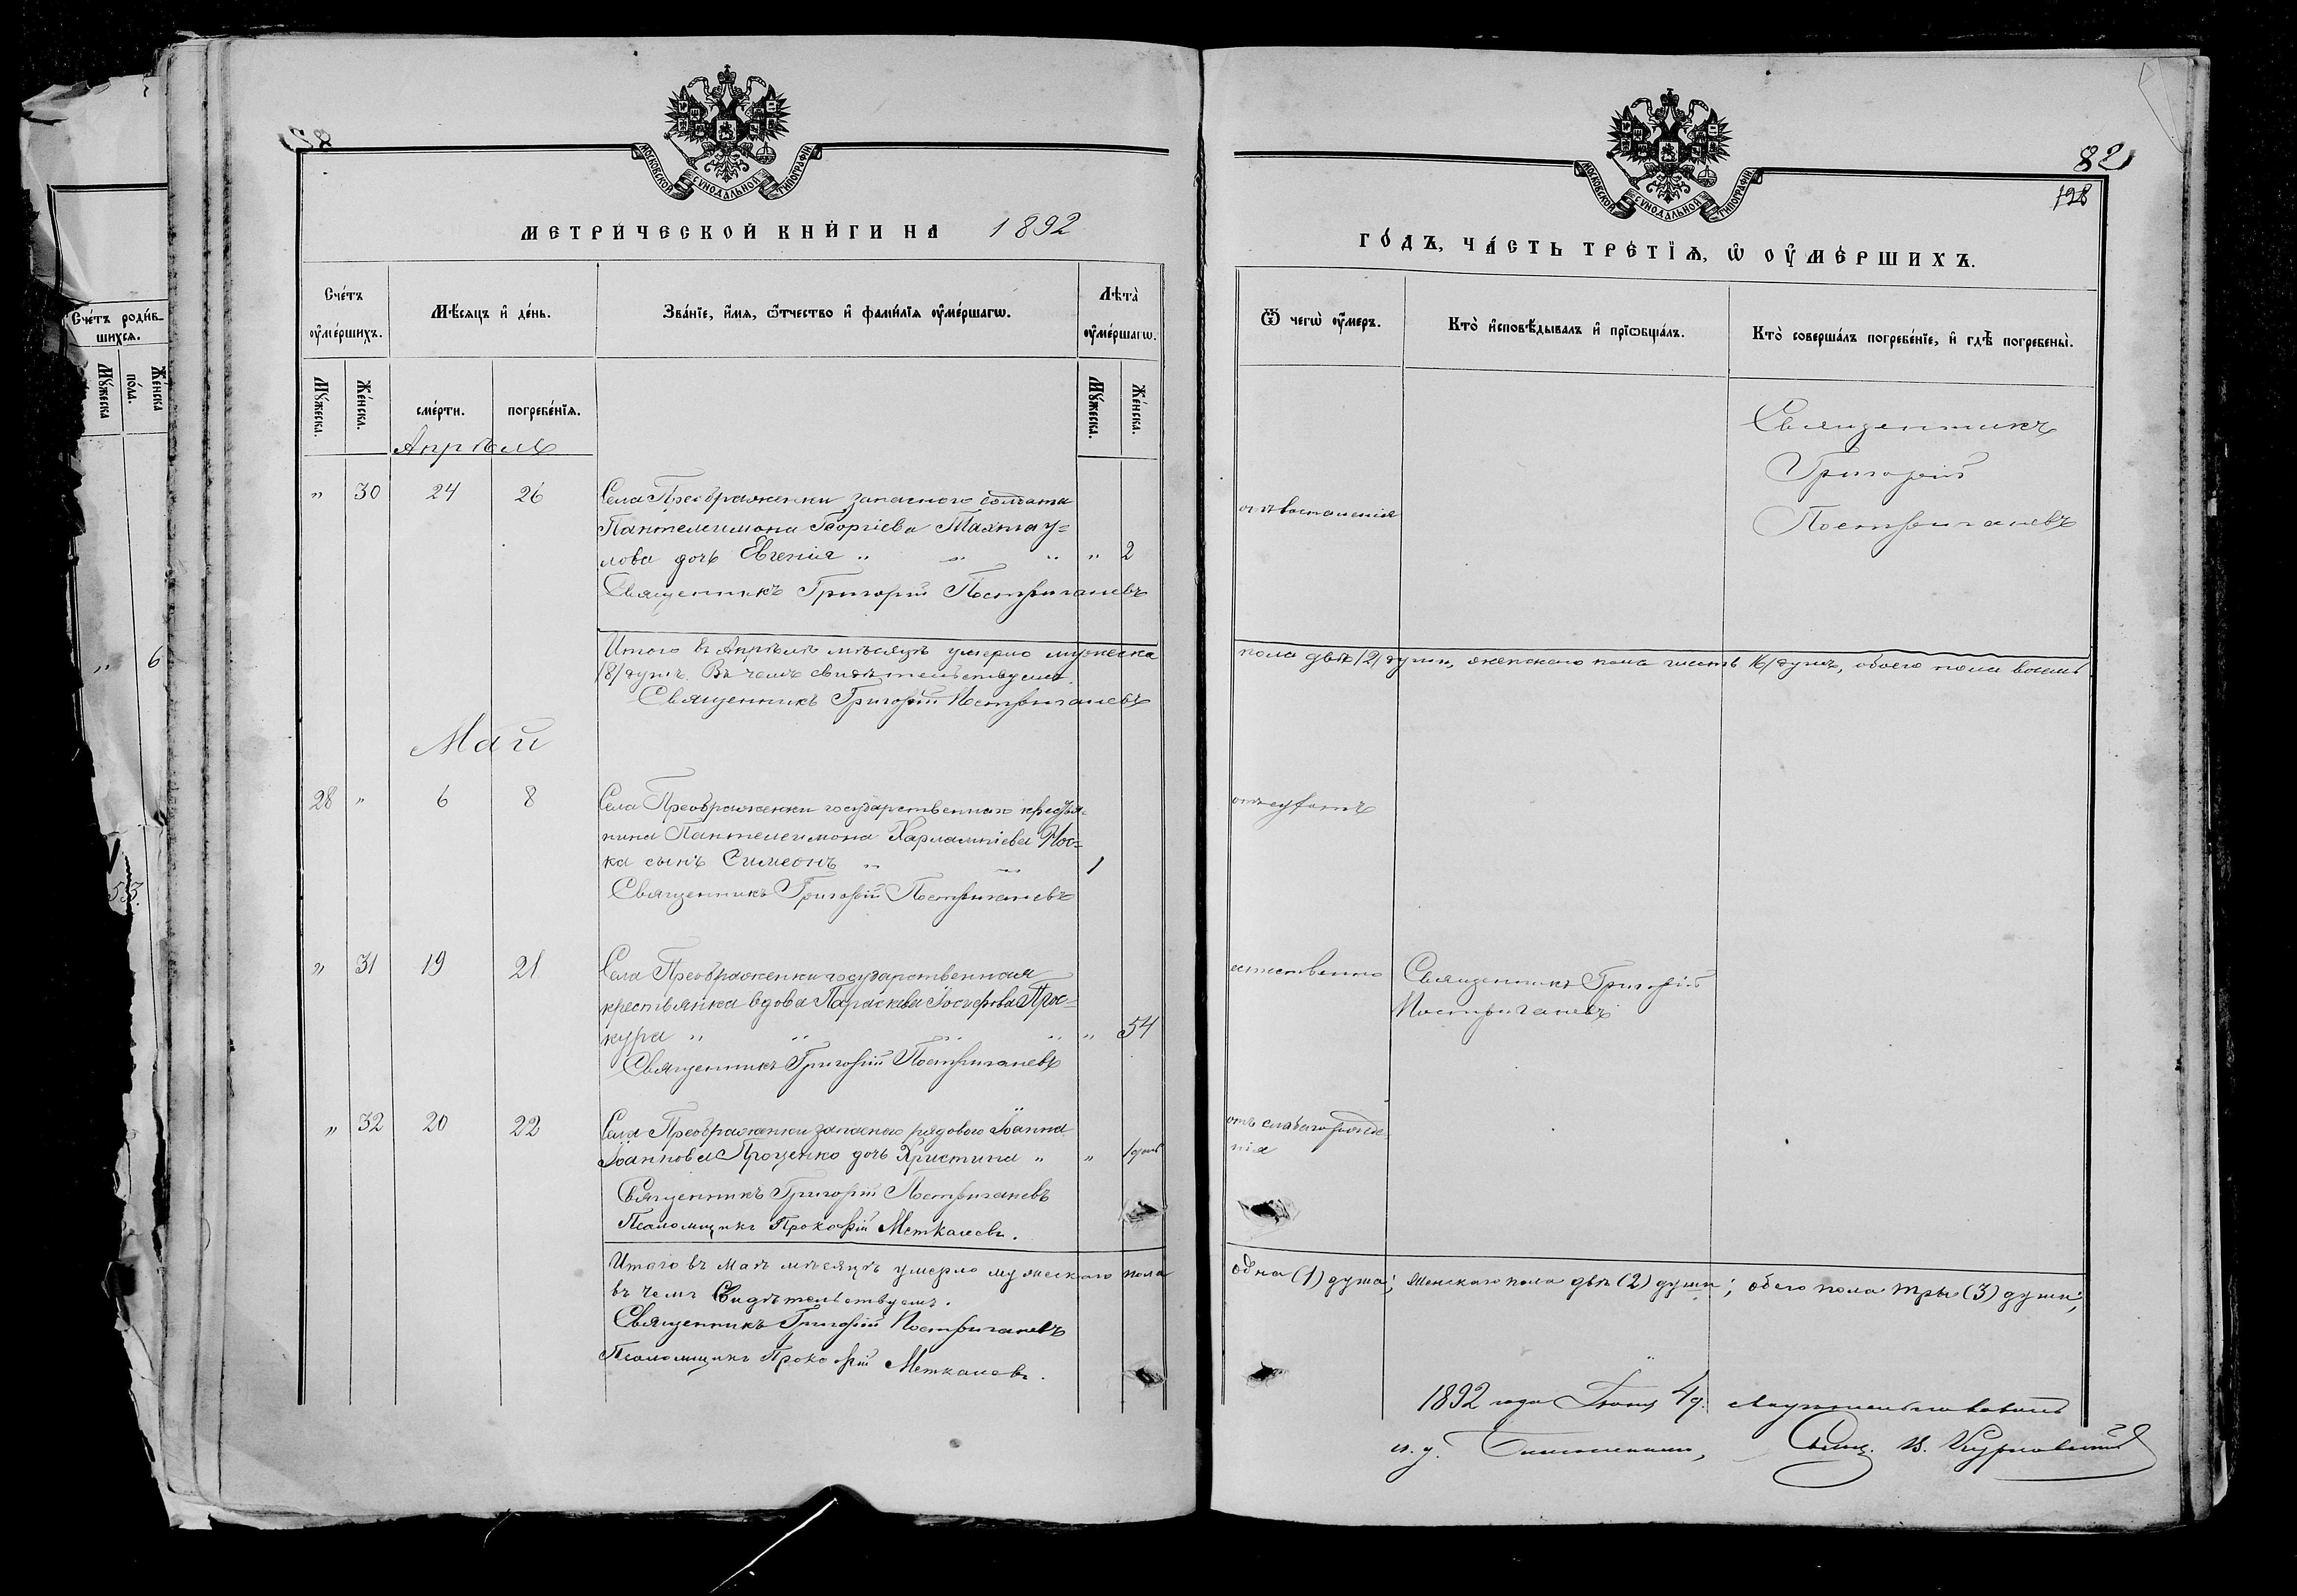 МОСКОВСКОЙ СѴНОДАЛЬНОЙ ТИПОГРАФІИ
МЕТРИЧЕСКОЙ КНИГИ НА 1892
Счетъ оумершихъ.
Мѣсяцъ и день.
Званіе, имя, ѿтчество и фамилія оумершагѡ.
Лѣта оумершагѡ.
Мꙋжеска. Женска.
смерти. погребенія.
Мꙋжеска. Женска.
Апрѣль
„ 30 24 26 Села Преображенки запаснаго солдата
Пантелеимона Георгіева
лова дочь Евгенія „ „ „ „ 2
Священникъ Григорій Постригачевъ
Итого въ Апрѣлѣ мѣсяцѣ умерло мужеска
/8/ душъ. Въ чемъ свидѣтельствуемъ.
Священникъ Григорій Постригачевъ
Май
28 „ 6 8 Села Преображенки государственнаго крестья-
нина Пантелеимона Харлампіева Нос-
ка сынъ Симеонъ „ „ 1
Священникъ Григорій Постригачевъ
„ 31 19 21 Села Преображенки государственная
крестьянка вдова Параскева Іосифова Прос-
кура „ „ „ „ „ 54
Священникъ Григорій Постригачевъ
„ 32 20 22 Села Преображенки запаснаго рядового Іоанна
Іоаннова Проценко дочь Христина „ „
Священникъ Григорій Постригачевъ
Псаломщикъ Прокофій Меткалевъ.
Итого въ Маѣ мѣсяцѣ умерло мужескаго пола
въ чемъ Свидѣтельствуемъ.
Священникъ Григорій Постригачевъ
Псаломщикъ Прокофій Меткалевъ.
82
128
МОСКОВСКОЙ СѴНОДАЛЬНОЙ ТИПОГРАФІИ
ГОДЪ, ЧАСТЬ ТРЕТІЯ, Ѡ ОУМЕРШИХЪ.
Ѿ чегѡ оумеръ.
Кто исповѣдывалъ и пріѡбщалъ.
Кто совершалъ погребеніе, и гдѣ погребены.
Священникъ
Григорій
Постригачевъ
отъ воспаленія
пола двѣ /2/ души, женскаго пола шесть /6/ душъ, обоего пола восемь
отъ
естественно Священникъ Григорій
Постригачевъ
отъ слабаго рожде-
нія
одна (1) душа; женскаго пола двѣ (2) души; обоего пола три (3) души;
1892 года Іюня 4 д.
и. д. Благочиннаго, Свящ.
Счетъ родив-
шихся.
Мꙋжеска пола. Женска
„ 6
53.